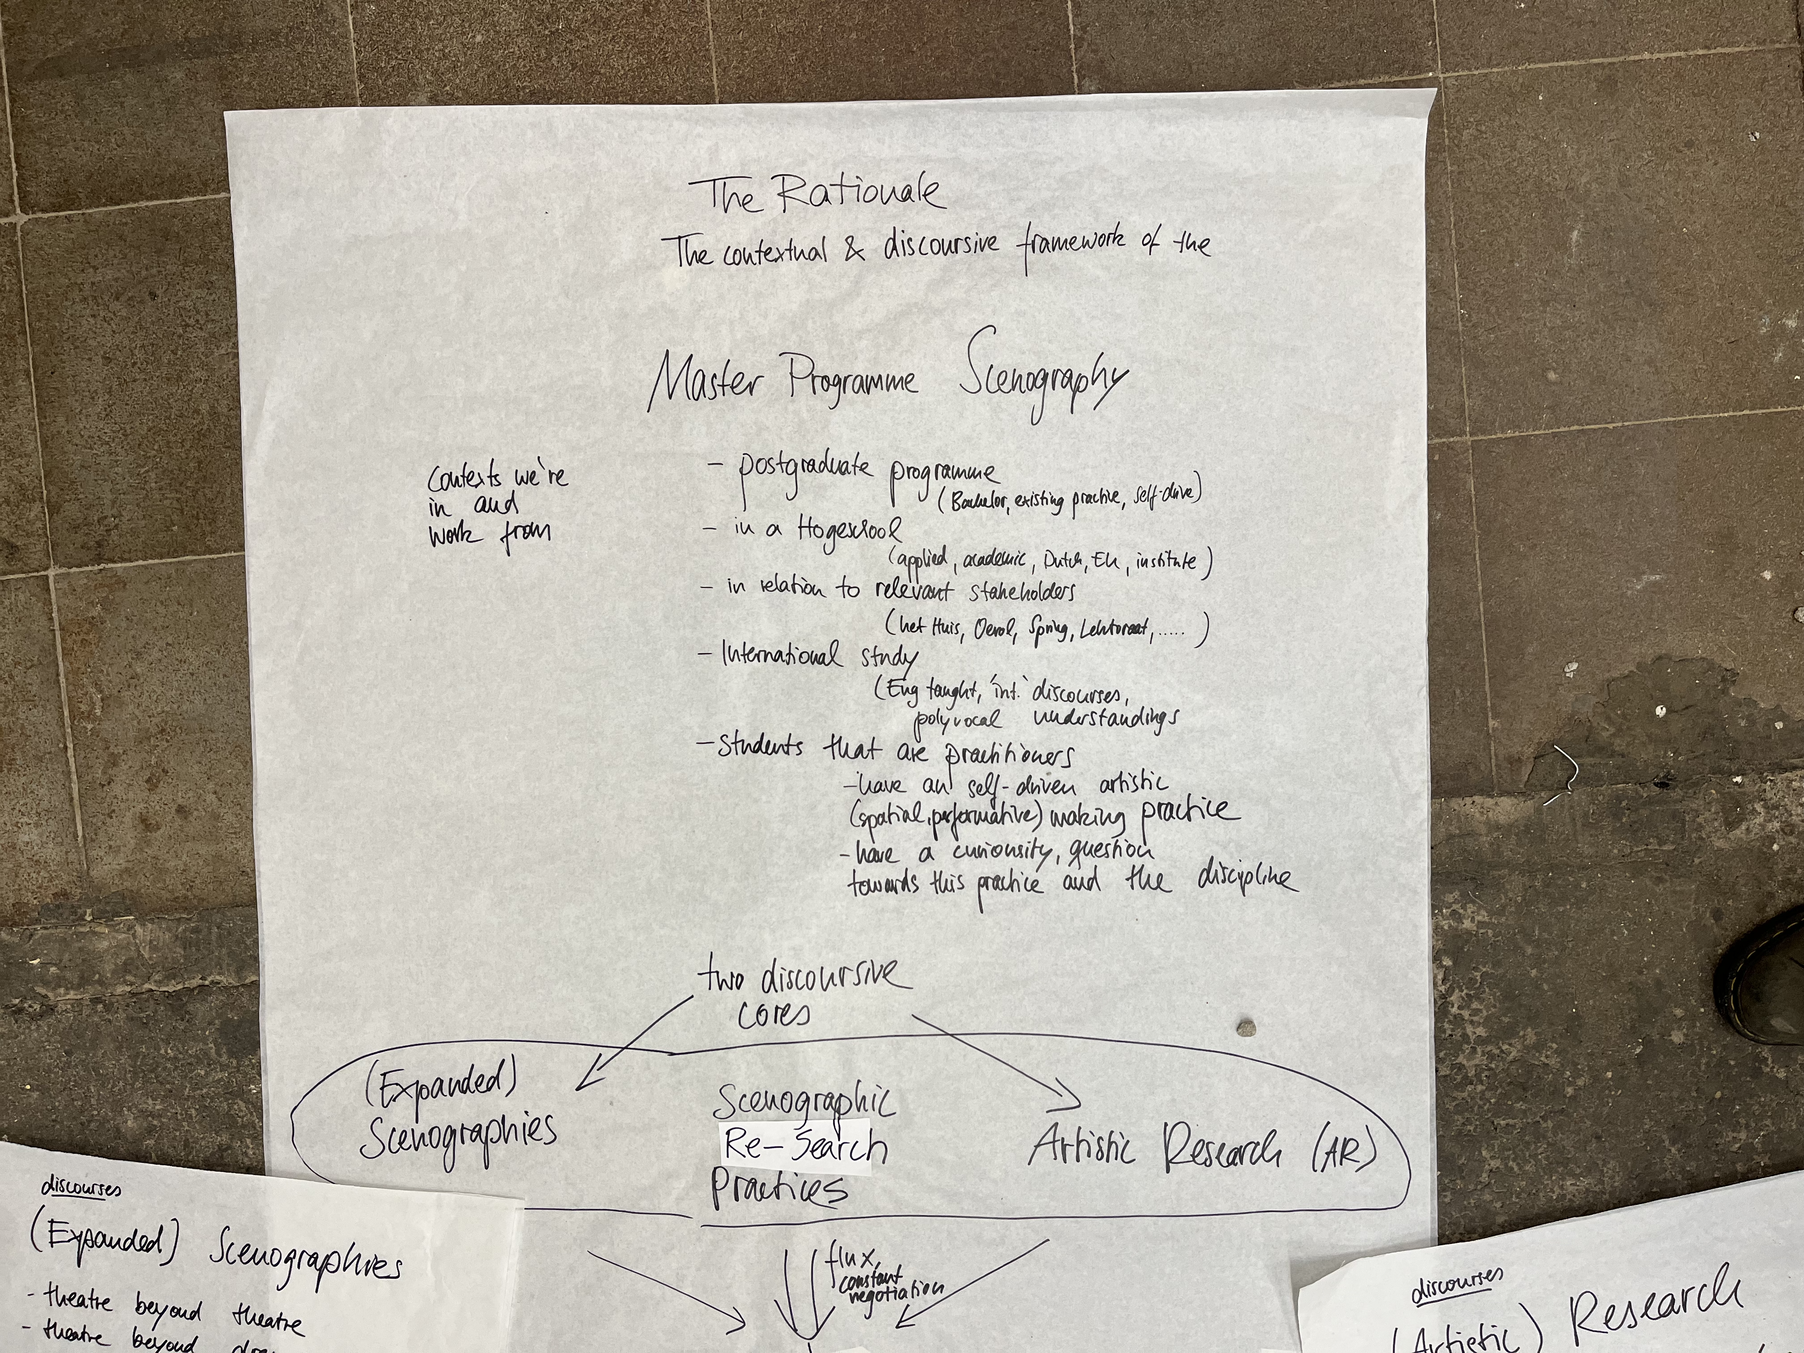 The Rationale
The contextual & discoursive framework of the
Master Programme Scenography
Contexts we're
in and
work from
- postgraduate programme
(Bachelor, existing practice, self-drive)
- in a Hogeschool
(applied, academic, Dutch, EU, institute)
- in relation to relevant stakeholders
(het Huis, Oerol, Spring, Lektoraat, .....)
- International study
(Eng taught, 'int.' discourses,
polyvocal understandings
- Students that are practitioners
- have an self-driven artistic
(spatial, performative) making practice
- have a curiousity, question
towards this practice and the discipline
two discoursive
cores
(Expanded)
Scenographies
Scenographic
Re-Search
Practices
Artistic Research (AR)
flux,
constant
negotiation
discourses
(Expanded) Scenographies
- theatre beyond theatre
- theatre beyond
discourses
(Artistic) Research